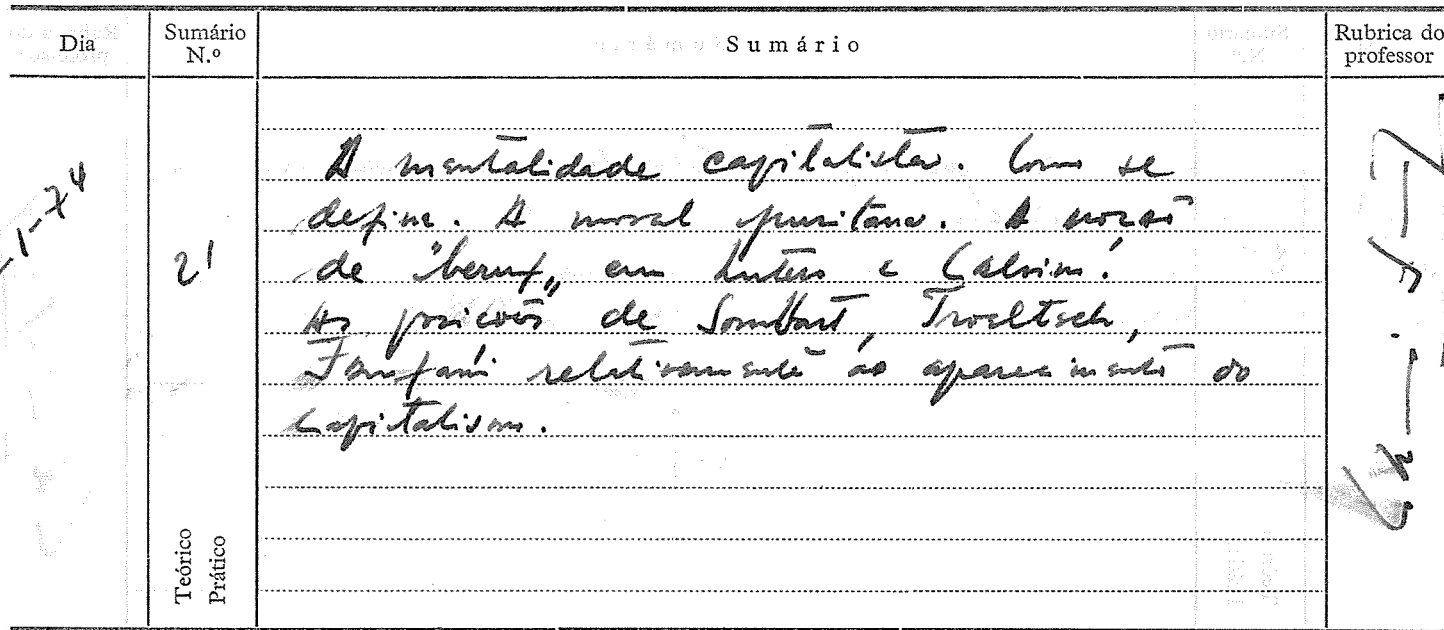 Dia
Sumário N.º
Sumário
Rubrica do professor
-1-74
21
A mentalidade capitalista. Como se
define. A moral puritana. A noção
de "beruf" em Lutero e Calvino.
As posições de Sombart, Troeltsch,
Fanfani relativamente ao aparecimento do
Capitalismo.
Teórico
Prático